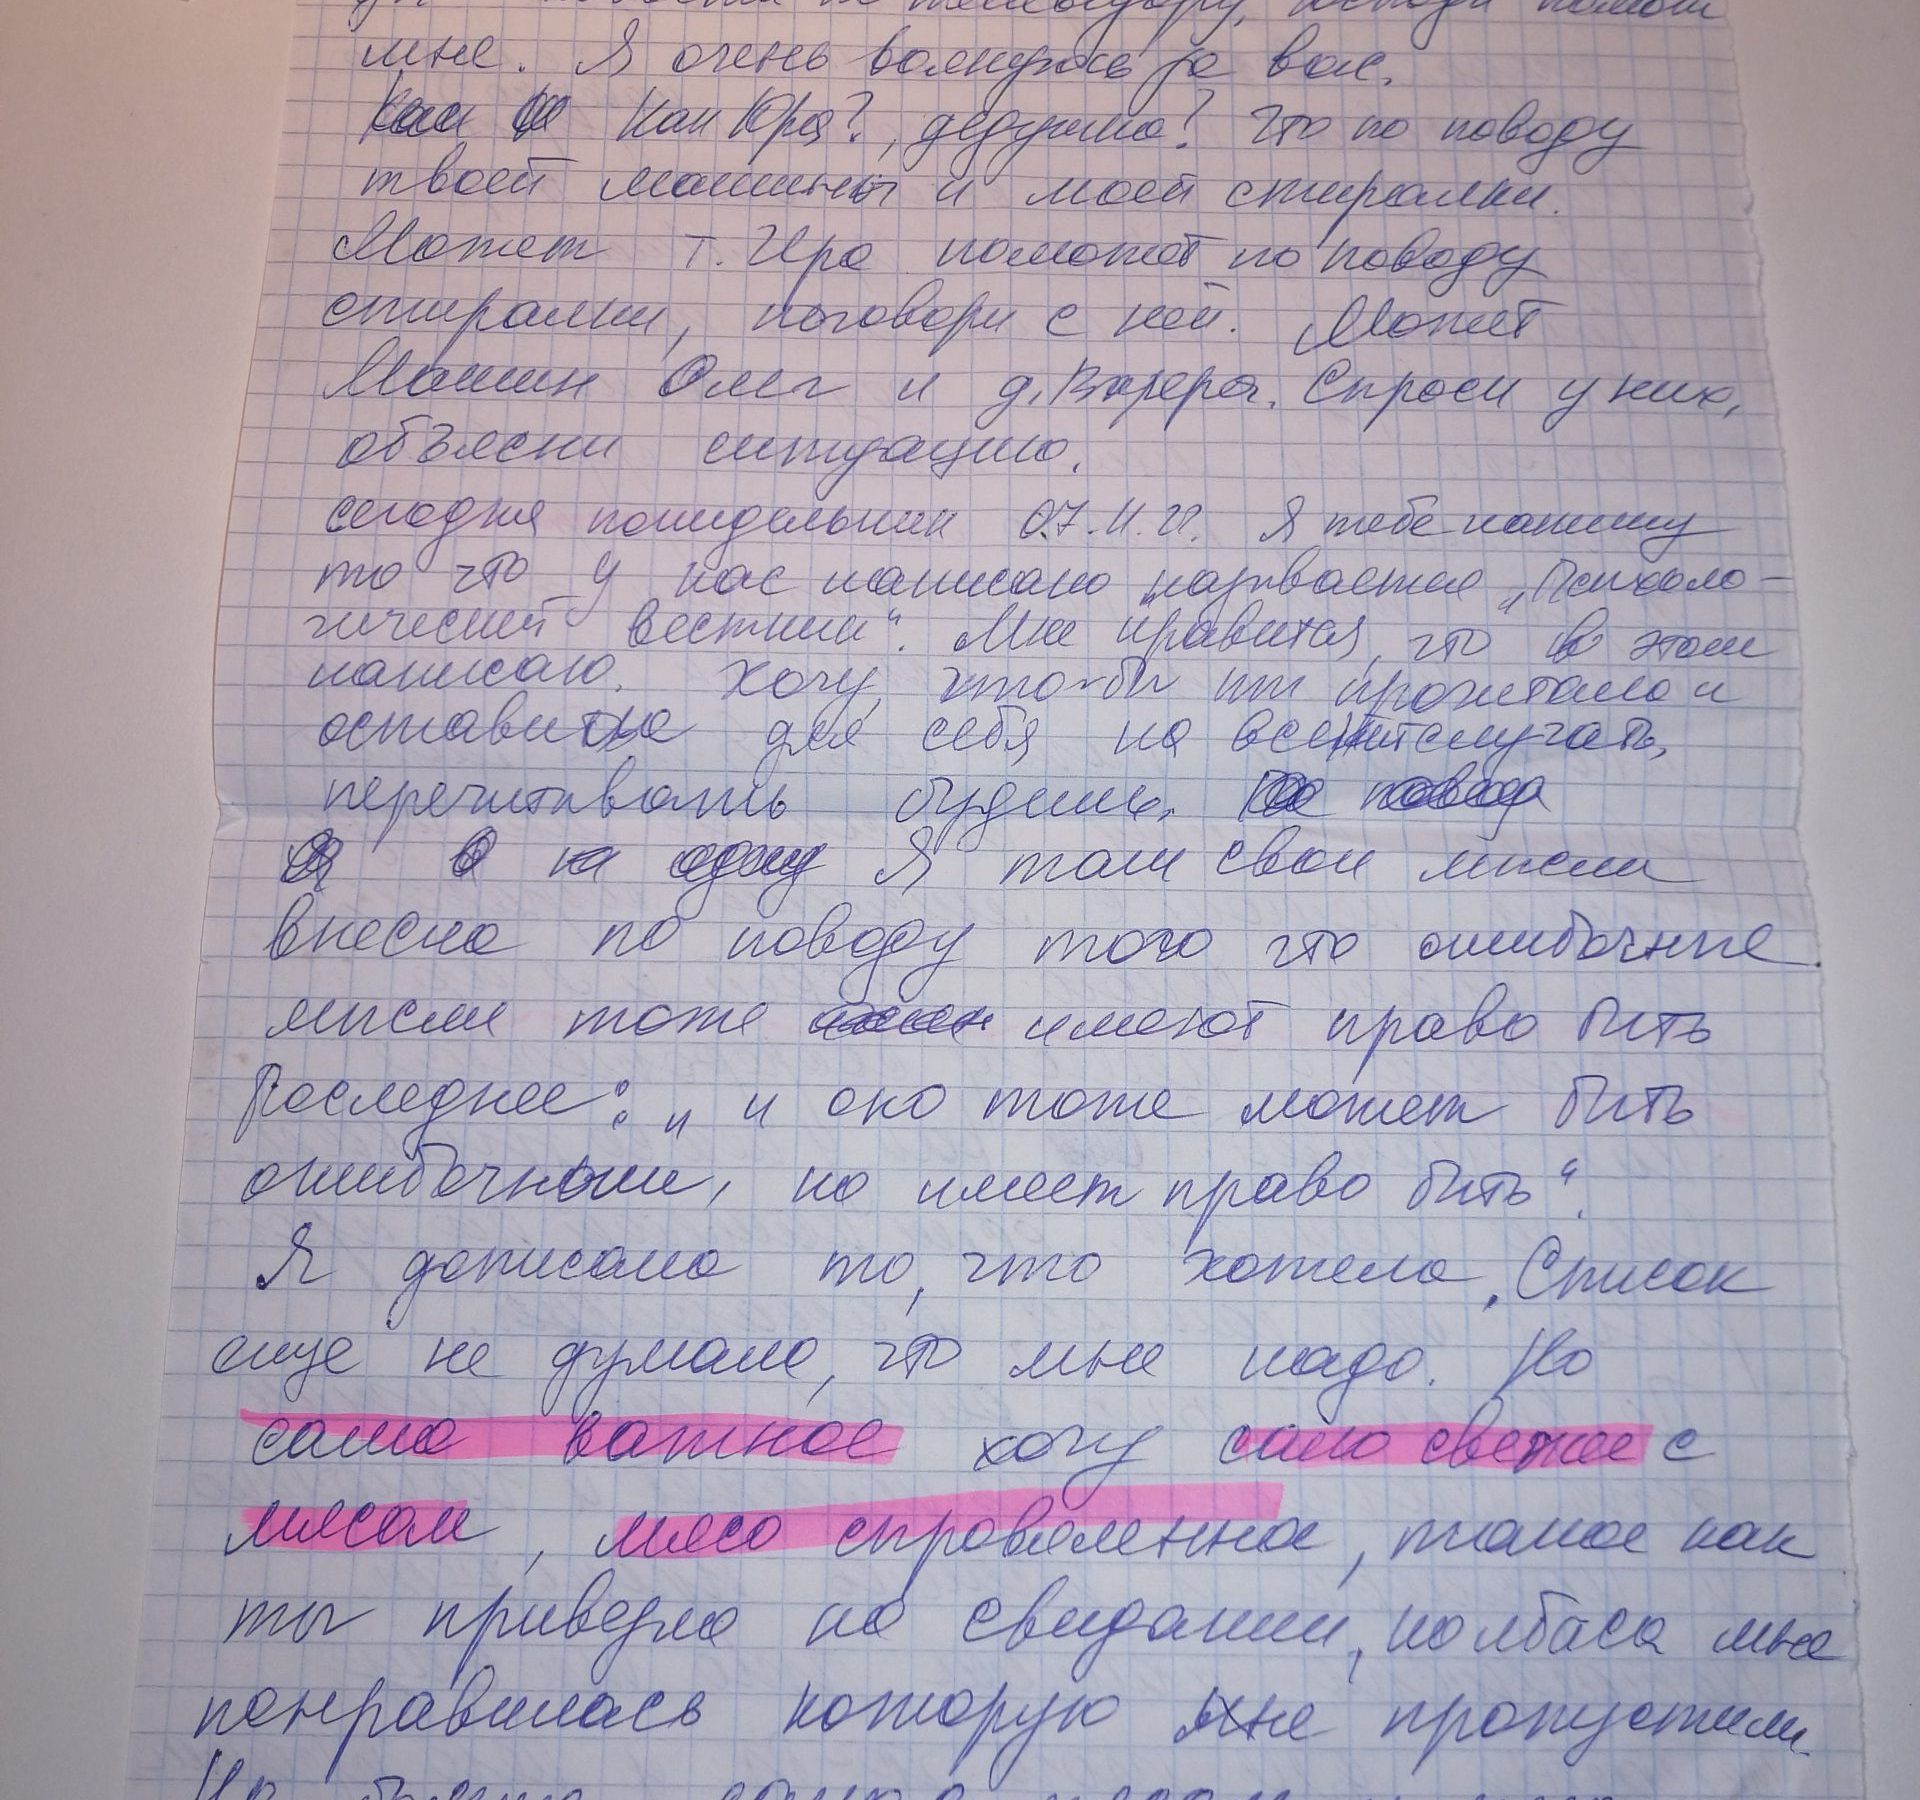 мне. Я очень волнуюсь за вас.
Как Юра?, дедушка? Что по поводу
твоей машины и моей стиралки.
Может т. Ира поможет по поводу
стиралки, поговори с ней. Может
Машин Олег и д. Валера. Спроси у них,
объясни ситуацию.
сегодня понидельник 07.11.22. Я тебе напишу
то что у нас написано называется „Психоло-
гический вестник“. Мне нравится, что в этом
написано. Хочу, что-бы ты прочитала и
оставила для себя на всякий случай,
перечитывать будешь.
Я там свои мысли
внесла по поводу того что ошибочные
мысли тоже имеют право быть
Последнее: „и оно тоже может быть
ошибочным, но имеет право быть“.
Я дописала то, что хотела. Список
еще не думала, что мне надо. Но
само важное хочу сало свежее с
мясом, мясо справяленное, такое как
ты привезла на свидании, колбаса мне
понравилась которую не пропустили.